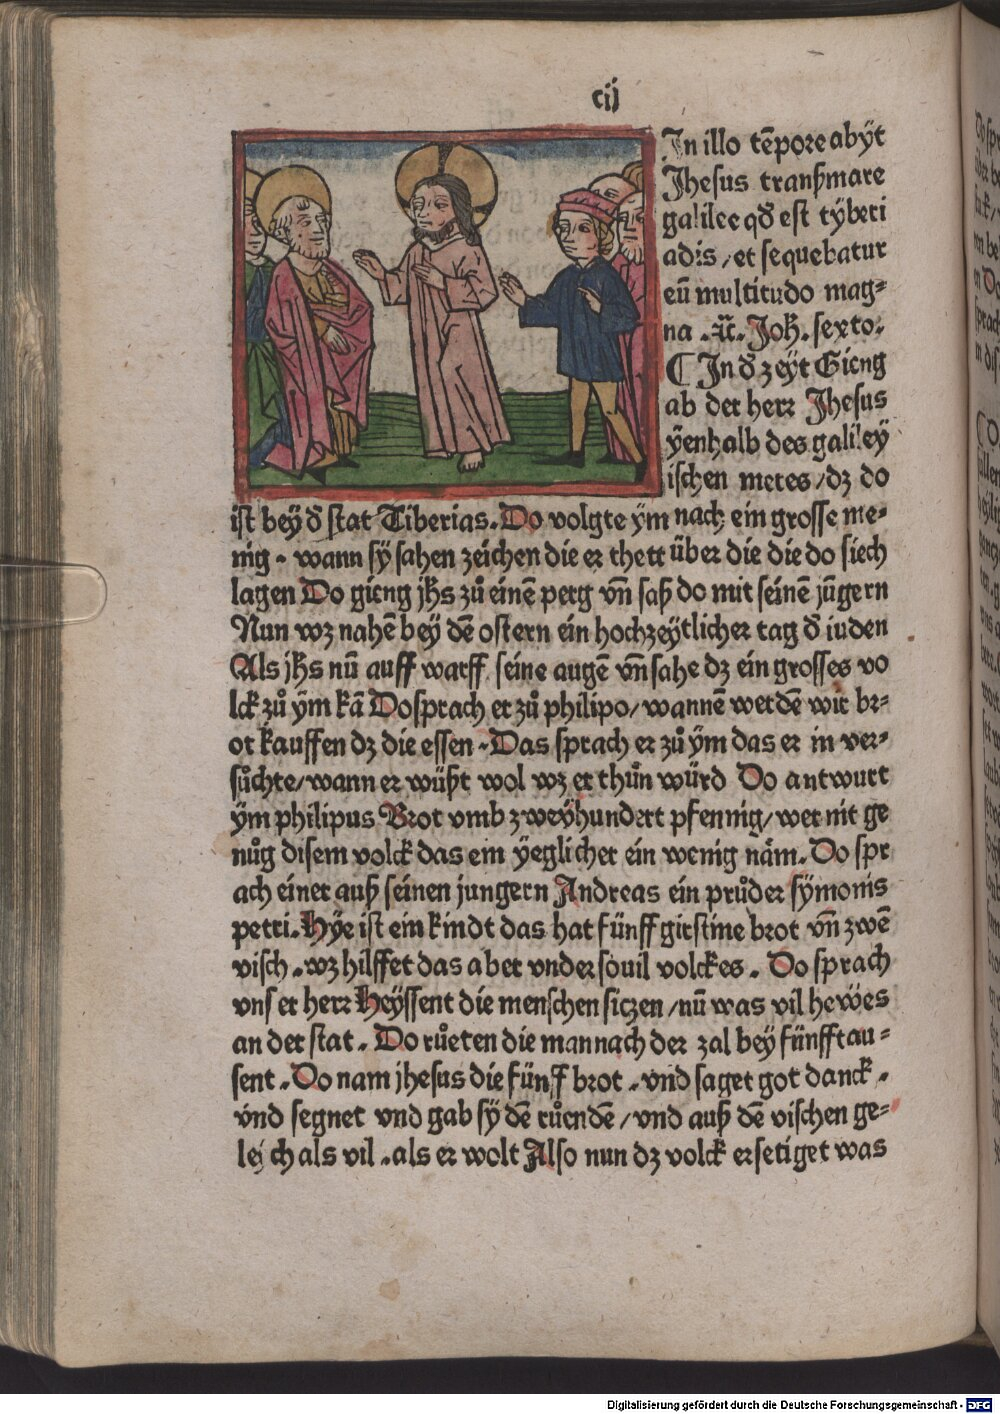 cij
In illo tēpore abÿt
Jhesus tranßmare
galilee qð est tÿberi
adis / et sequebatur
eū multitudo mag⸗
na .ꝛc̄. Joh̄. sexto.
¶ In ð zeÿt Gieng
ab der herr Jhesus
ÿenhalb des galileÿ
ischen meres / dz do
ist beÿ ð stat Tiberias. Do volgte ÿm nach ein grosse me⸗
nig . wann sÿ sahen zeichen die er thett über die die do siech
lagen Do gieng jh̄s zuͦ einē perg vn̄ saß do mit seinē jūgern
Nun wz nahē beÿ dē ostern ein hochzeÿtlicher tag ð iuden
Als jh̄s nū auff warff seine augē vn̄ sahe dz ein grosses vo
lck zuͦ ÿm kā Do sprach er zuͦ philipo / wannē werdē wir br⸗
ot kauffen dz die essen . Das sprach er zuͦ ÿm das er in ver⸗
suͦchte / wann er wüßt wol wz er thuͦn würd Do antwurt
ÿm philipus Brot vmb zweÿhundert pfennig / wer nit ge
nuͦg disem volck das ein ÿeglicher ein wenig näm. Do spr
ach einer auß seinen jungern Andreas ein pruͦder sÿmonis
petri. Hÿe ist ein kindt das hat fünff girstine brot vn̄ zwē
visch . wz hilffet das aber vnder souil volckes . Do sprach
vnser herr Heÿssent die menschen siczen / nū was vil hewes
an der stat . Do ruͦeten die man nach der zal beÿ fünfftau⸗
sent . Do nam jhesus die fünff brot . vnd saget got danck .
vnd segnet vnd gab sÿ dē ruͦendē / vnd auß dē vischen ge⸗
leich als vil . als er wolt Also nun dz volck ersetiget was
Digitalisierung gefördert durch die Deutsche Forschungsgemeinschaft - DFG